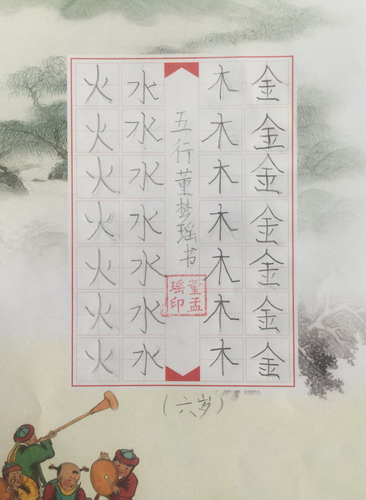 金金金金金金金
木木木木木木木
五行董梦瑶书
董孟瑶印
水水水水水水水
火火火火火火火
(六岁)